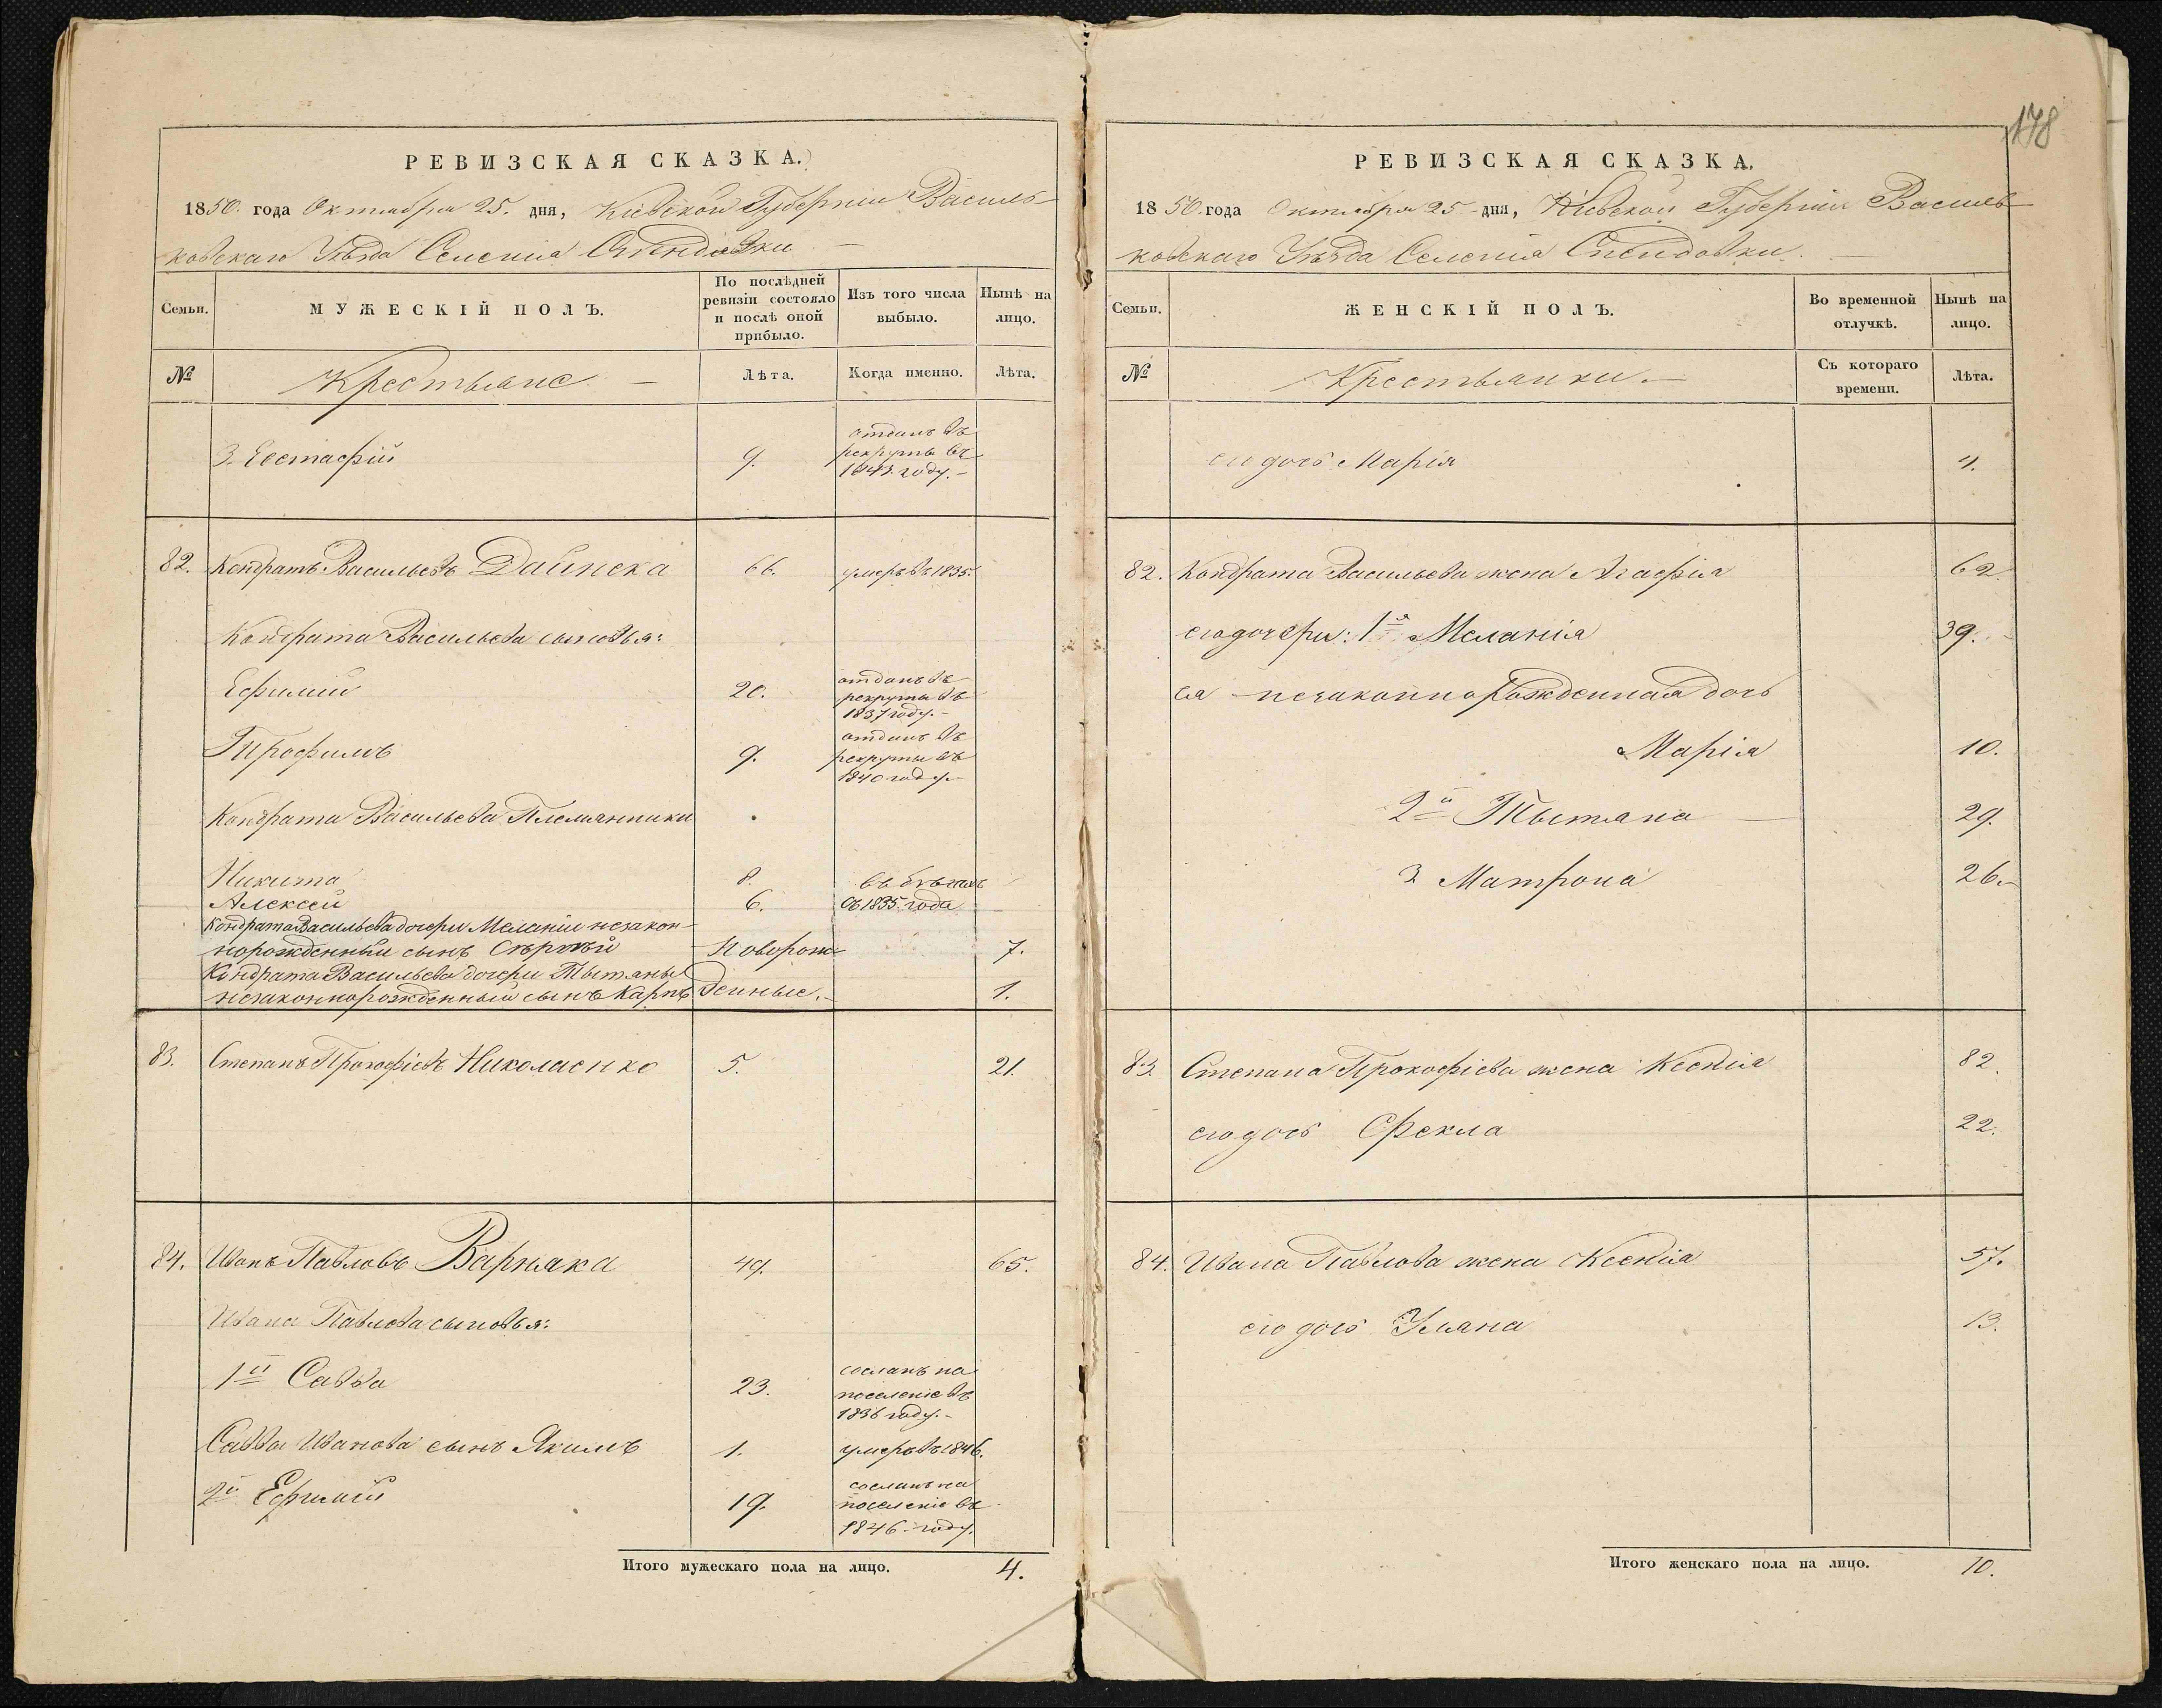 178
РЕВИЗСКАЯ СКАЗКА.
1850. года Октября 25. дня, Кіевской Губерніи Василь-
ковскаго Уѣзда Селенія
Семьи.
МУЖЕСКІЙ ПОЛЪ.
По послѣдней
ревизіи состояло
и послѣ оной
прибыло.
Изъ того числа
выбыло.
Нынѣ на
лицо.
№
Крестьяне
Лѣта.
Когда именно.
Лѣта.
3. Евстафій 9. отданъ въ
рекруты въ
году.
82. Кондратъ Васильевъ 66. умеръ въ 1835.
Кондрата Васильева сыновья:
Ефимій 20. отданъ въ
рекруты въ
1837 году.
Трофимъ 9. отданъ въ
рекруты въ
1840 году.
Кондрата Васильева Племянники
Никита 8. въ бѣгахъ
Алексей 6. съ 1835 года
Кондрата Васильева дочери Меланіи незакон-
норожденный сынъ Сергѣй Новорож- 7.
Кондрата Васильева дочери Тытяны
незаконнорожденный сынъ Карпъ денные. 1.
83. Степанъ Прокофіевъ Николаенко 5. 21.
84. Иванъ Павловъ Варнака 49. 65.
Ивана Павлова сыновья:
1й Савва 23. сосланъ на
поселеніе въ
1836 году.
Саввы Иванова сынъ Якимъ 1. умеръ въ 1846.
2й Ефимій 19. сосланъ на
поселеніе въ
1846 году.
Итого мужескаго пола на лицо. 4.
РЕВИЗСКАЯ СКАЗКА.
1850. года Октября 25 дня, Кіевской Губерніи Василь-
ковскаго Уѣзда Селенія
Семьи.
ЖЕНСКІЙ ПОЛЪ.
Во временной
отлучкѣ.
Нынѣ на
лицо.
№
Крестьянки
Съ котораго
времени.
Лѣта.
его дочь Марія 4.
82. Кондрата Васильева жена Агафія 62.
его дочери: 1я Меланія 39.
ея незаконнорожденная дочь
Марія 10.
2я Тытяна 29.
3 Матрона 26.
83. Степана Прокофіева жена Ксенія 82.
его дочь Фекла 22.
84. Ивана Павлова жена Ксенія 57.
его дочь Уляна 13.
Итого женскаго пола на лицо. 10.